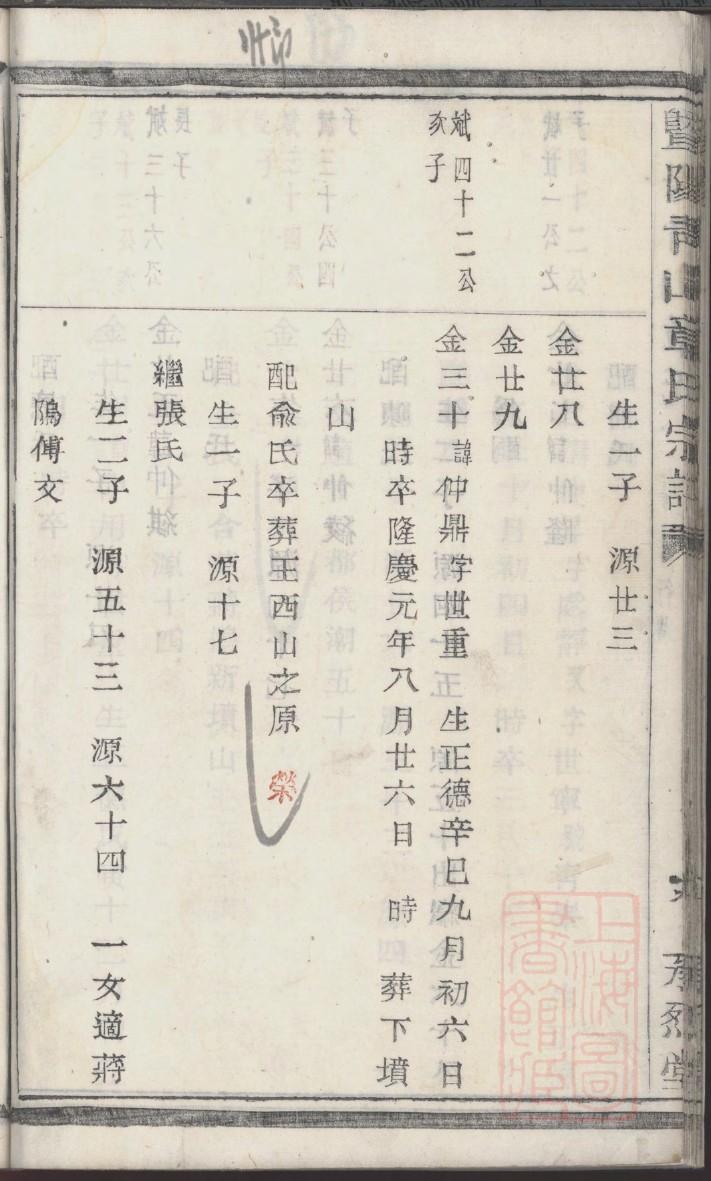 暨陽青山章氏宗譜
生一子 源廿三
金廿八
金廿九
斌四十二公
亥子
金三十諱仲鼎字世重 生正德辛巳九月初六日
時卒隆慶元年八月廿六日 時 葬下墳
山
配俞氏卒葬王西山之原 榮
生一子 源十七
繼張氏
生二子 源五十三 源六十四 一女適蔣
隖傅文
上海圖書館藏